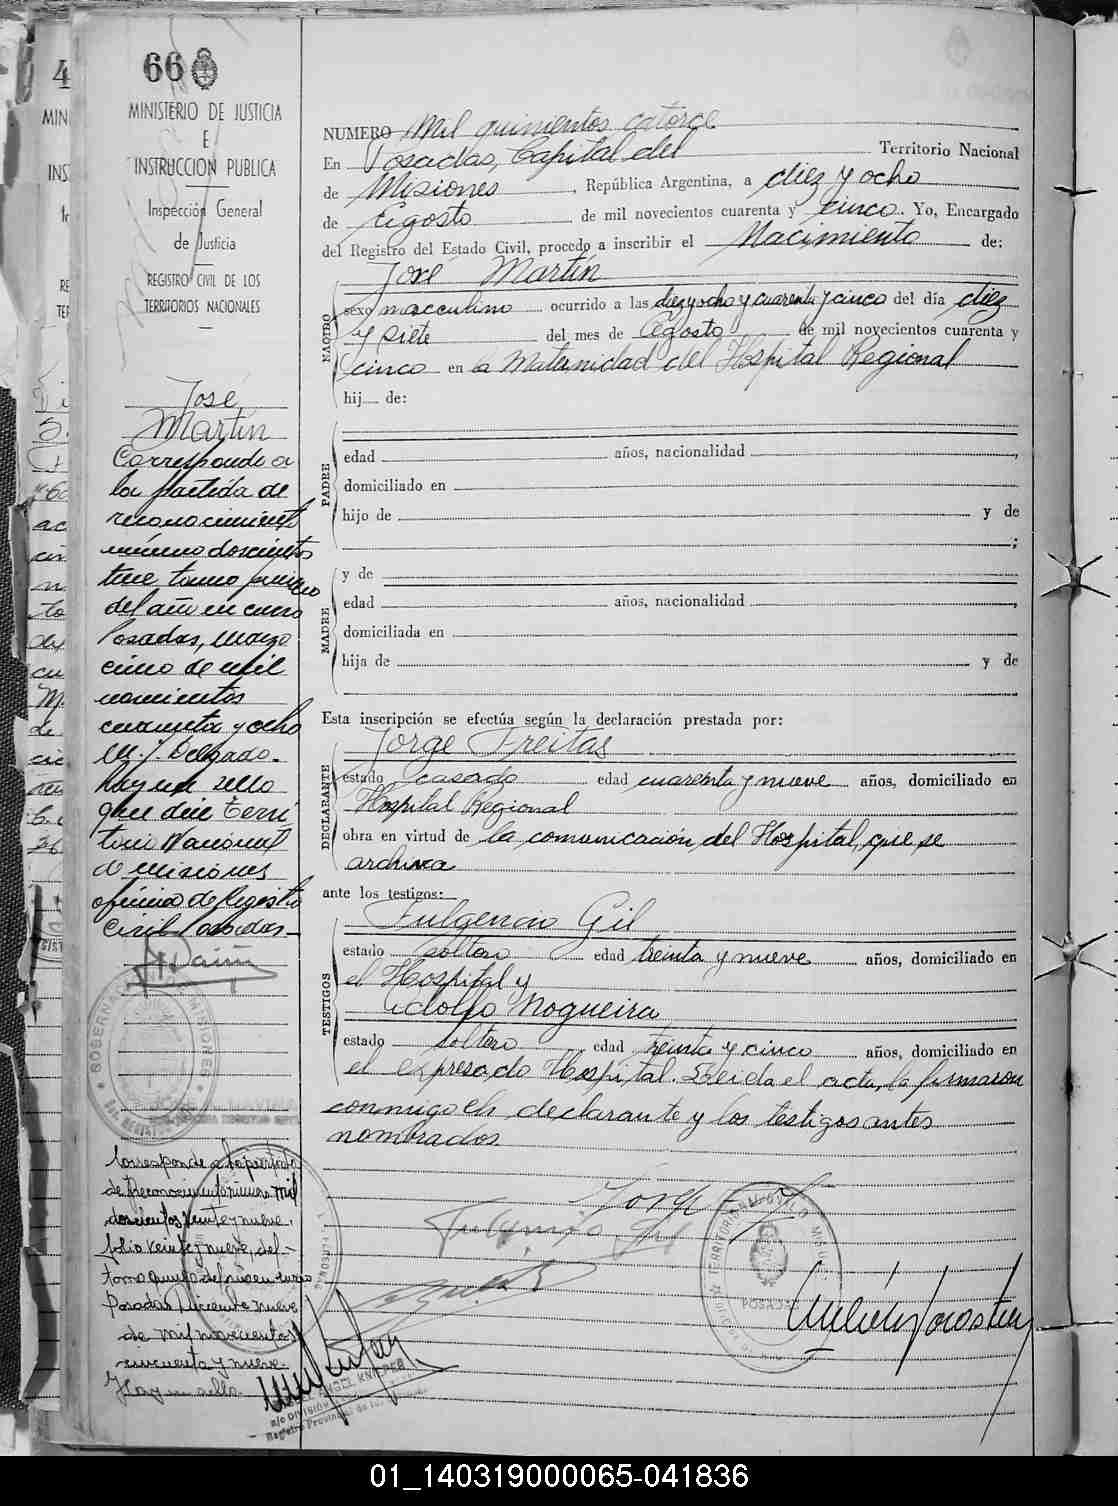 66
MINISTERIO DE JUSTICIA
E
INSTRUCCION PUBLICA
Inspección General
de Justicia
REGISTRO CIVIL DE LOS
TERRITORIOS NACIONALES
José
Martín
Corresponde a
la partida de
reconocimiento
número doscientos
trece tomo primero
del año en curso
Posadas, marzo
cinco de mil
novecientos
cuarenta y ocho
M. J. Delgado.
hay un sello
que dice Terri
torio Nacional
de Misiones
oficina de Registro
Civil Posadas
Corresponde a la partida
de Reconocimiento número mil
doscientos veinte y nueve,
folio veinte y nueve, del
tomo quinto del año en curso
Posadas Diciembre nueve
de mil novecientos
cincuenta y nueve.
Hay un sello.
NUMERO Mil quinientos catorce
En Posadas, Capital del Territorio Nacional
de Misiones, República Argentina, a diez y ocho
de Agosto de mil novecientos cuarenta y cinco. Yo, Encargado
del Registro del Estado Civil, procedo a inscribir el Nacimiento de:
José Martín
NACIDO
sexo masculino ocurrido a las diez y ocho y cuarenta y cinco del día diez
y siete del mes de Agosto de mil novecientos cuarenta y
cinco en la Maternidad del Hospital Regional
hij de:
PADRE
edad años, nacionalidad ,
domiciliado en
hijo de y de
;
MADRE
y de
edad años, nacionalidad ,
domiciliada en
hija de y de
Esta inscripción se efectúa según la declaración prestada por:
Jorge Freitas
DECLARANTE
estado casado edad cuarenta y nueve años, domiciliado en
Hospital Regional
obra en virtud de la comunicación del Hospital, que se
archiva
ante los testigos:
Fulgencio Gil
TESTIGOS
estado soltero edad treinta y nueve años, domiciliado en
el Hospital y
Adolfo Nogueira
estado soltero edad treinta y cinco años, domiciliado en
el expresado Hospital. Leida el acta, la firmaron
conmigo el declarante y los testigos antes
nombrados
Fulgencio Gil
01_140319000065-041836